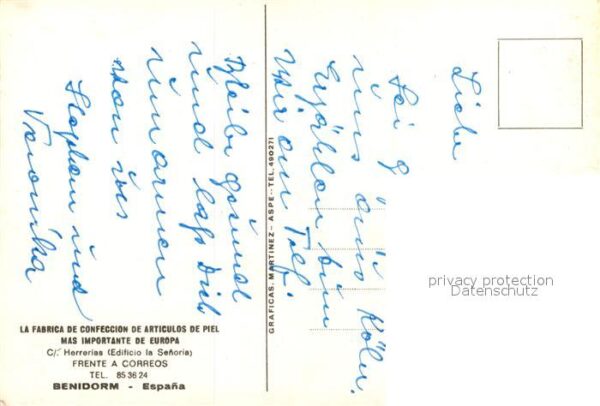 Liebe
Sei g
uns aus Köln.
Erzählen beim
wir am Telf.
Bleibe gesund
und lass Dich
umarmen
von uns
Stephan und
Veronika
GRAFICAS. MARTINEZ - ASPE - TEL. 490271
LA FABRICA DE CONFECCION DE ARTICULOS DE PIEL
MAS IMPORTANTE DE EUROPA
C/. Herrerias (Edificio la Señoria)
FRENTE A CORREOS
TEL. 85 36 24
BENIDORM - España
privacy protection
Datenschutz